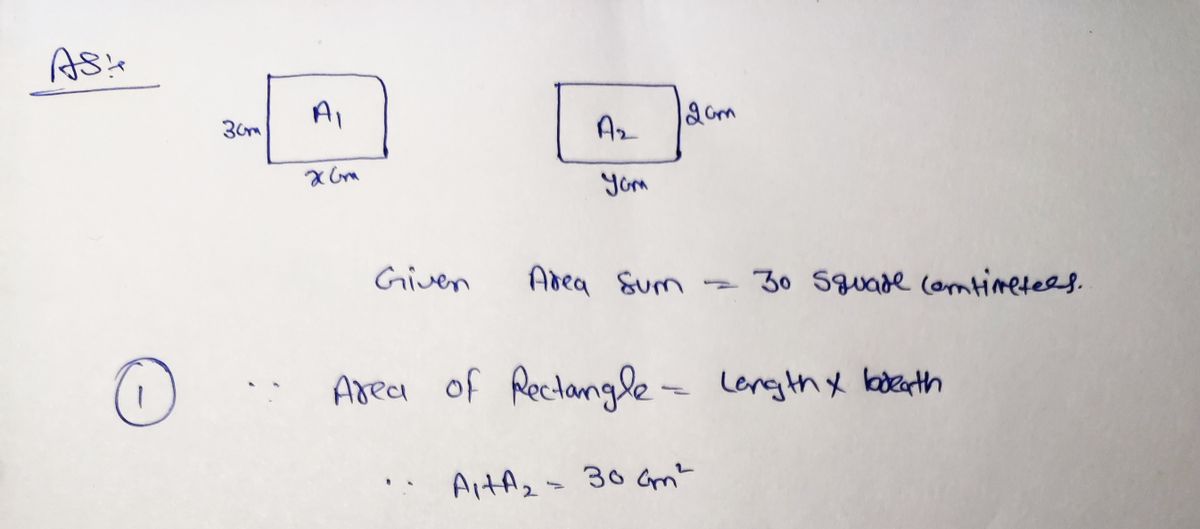 AS:-
3cm A1 A2 2cm
x cm y cm
Given Area sum = 30 square comtimeters.
1 ∵ Area of Rectangle = Length x breath
∵ A1+A2 = 30 cm²